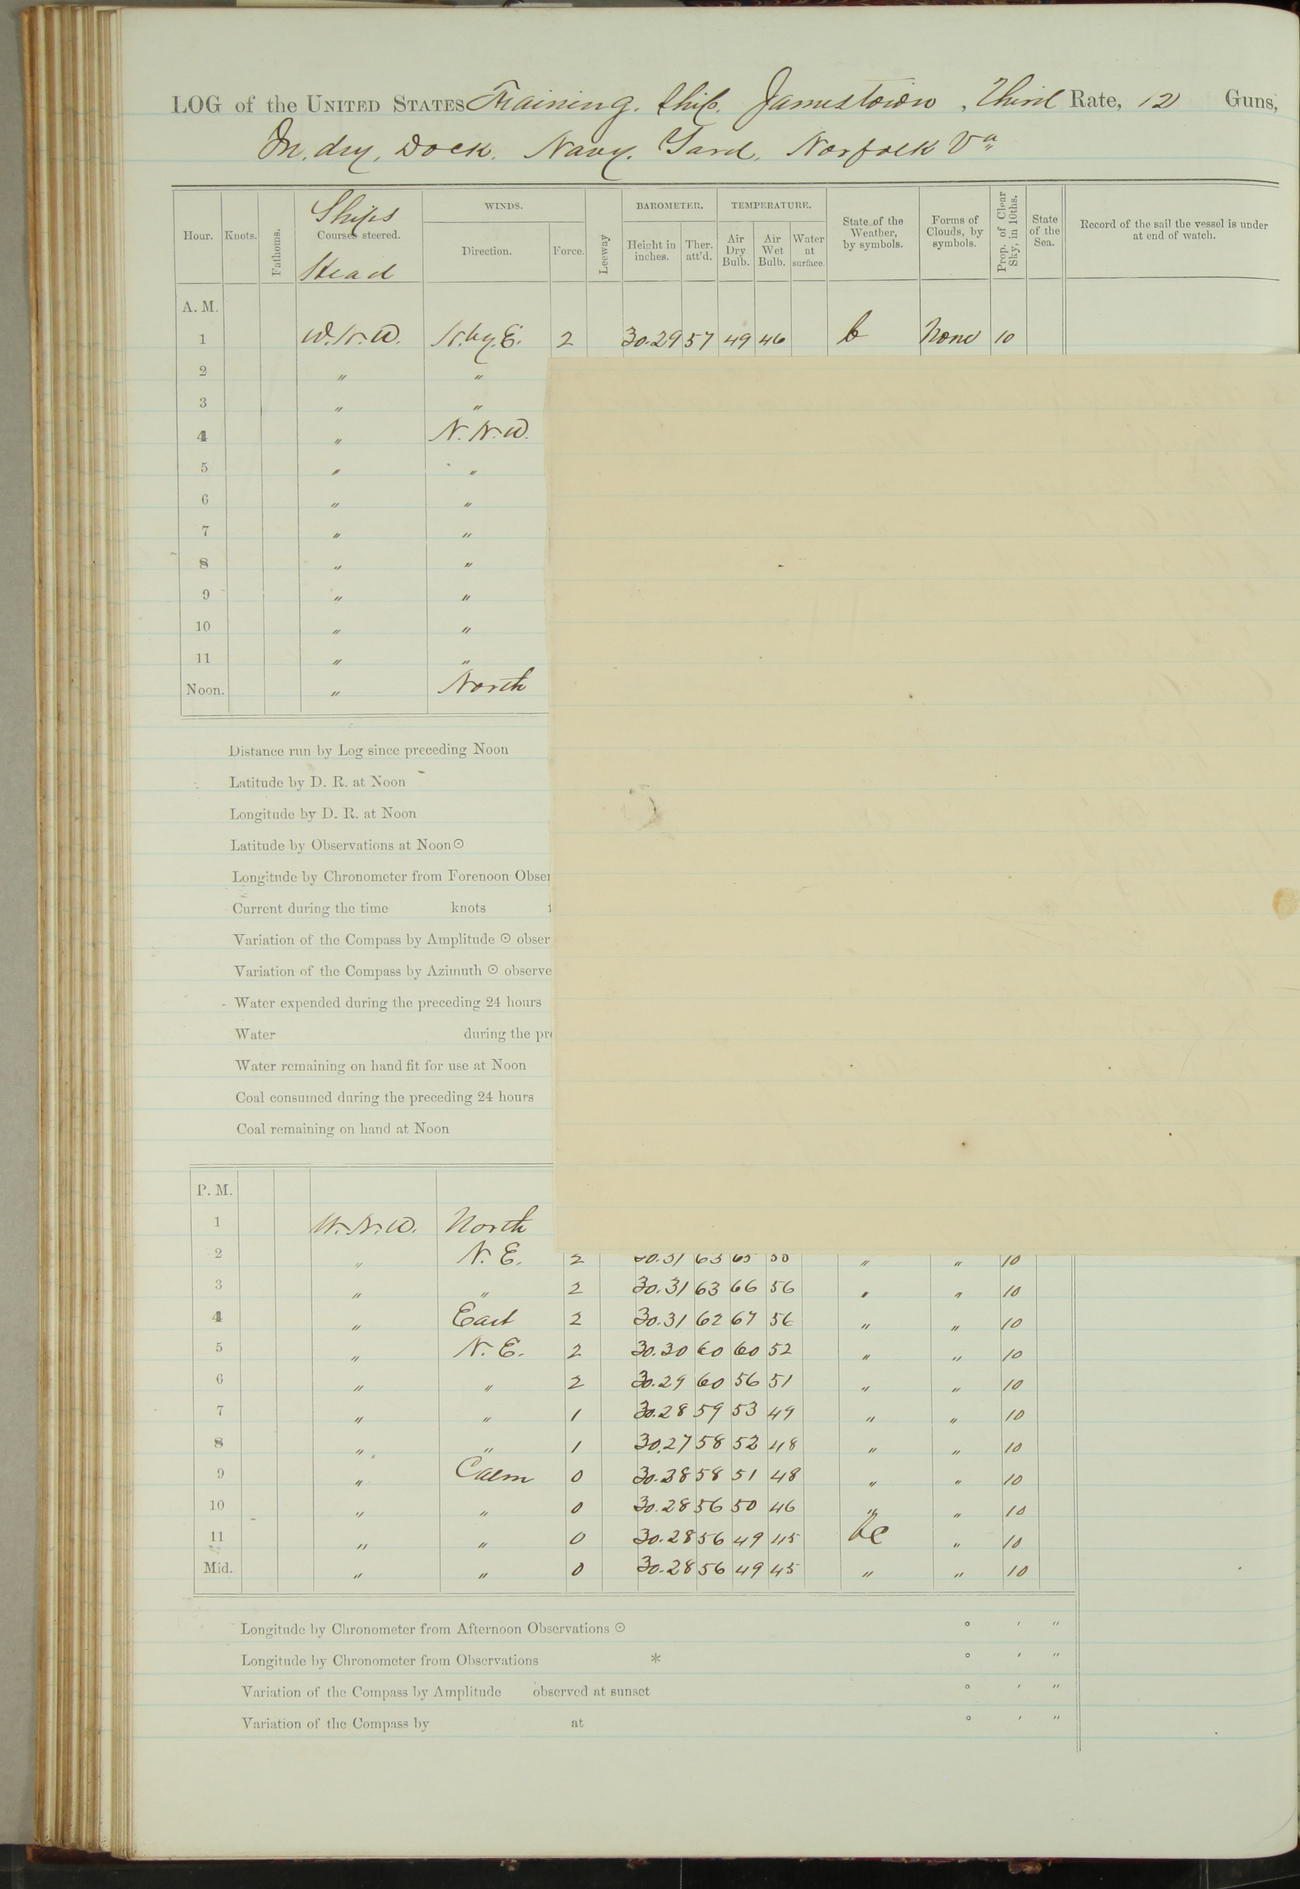 LOG of the UNITED STATES Training. Ship. Jamestown, Third Rate, 12 Guns,
In. dry. Dock. Navy. Yard. Norfolk Va
Hour. Knots. Fathoms. Ships Courses steered. Head WINDS. Direction. Force. Leeway BAROMETER. Height in inches. Ther. att'd. TEMPERATURE. Air Dry Bulb. Air Wet Bulb. Water at surface. State of the Weather, by symbols. Forms of Clouds, by symbols. Prop. of Clear Sky, in 10ths. State of the Sea. Record of the sail the vessel is under at end of watch.
A. M.
1 W.N.W. N.by.E. 2 30.29 57 49 46 b None 10
2 " "
3 " "
4 " N.N.W.
5 " "
6 " "
7 " "
8 " "
9 " "
10 " "
11 " "
Noon. " North
Distance run by Log since preceding Noon
Latitude by D. R. at Noon
Longitude by D. R. at Noon
Latitude by Observations at Noon ☉
Longitude by Chronometer from Forenoon Obser
Current during the time knots
Variation of the Compass by Amplitude ☉ obser
Variation of the Compass by Azimuth ☉ observe
Water expended during the preceding 24 hours
Water during the pre
Water remaining on hand fit for use at Noon
Coal consumed during the preceding 24 hours
Coal remaining on hand at Noon
P. M.
1 W.N.W. North
2 " N.E. 2 30.31 63 65 " " 10
3 " " 2 30.31 63 66 56 " " 10
4 " East 2 30.31 62 67 56 " " 10
5 " N.E. 2 30.30 60 60 52 " " 10
6 " " 2 30.29 60 56 51 " " 10
7 " " 1 30.28 59 53 49 " " 10
8 " " 1 30.27 58 52 48 " " 10
9 " Calm 0 30.28 58 51 48 " " 10
10 " " 0 30.28 56 50 46 " " 10
11 " " 0 30.28 56 49 45 bc " 10
Mid. " " 0 30.28 56 49 45 " " 10
Longitude by Chronometer from Afternoon Observations ☉ ° ' "
Longitude by Chronometer from Observations * ° ' "
Variation of the Compass by Amplitude observed at sunset ° ' "
Variation of the Compass by at ° ' "